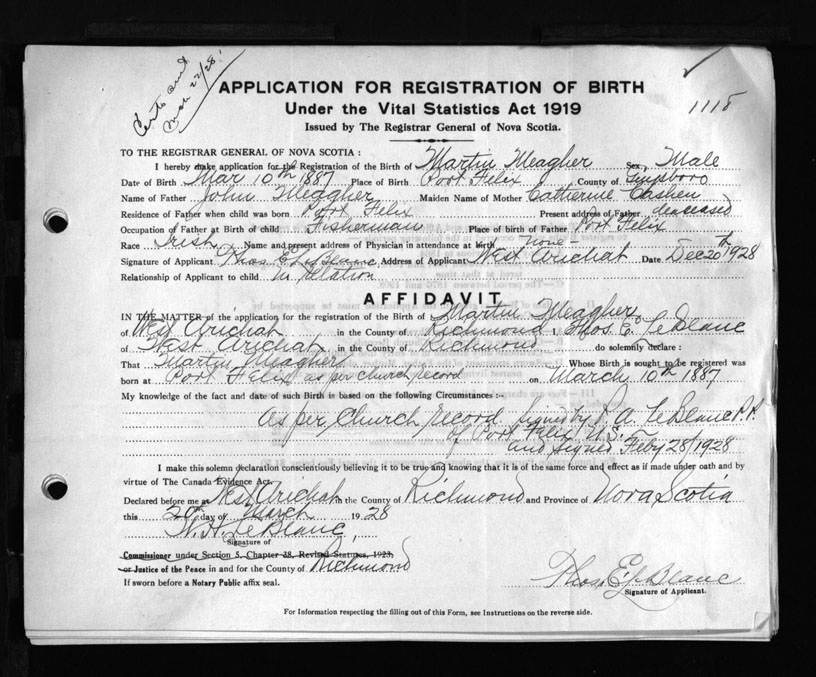 Certs sent
Mch 22/28
1118
APPLICATION FOR REGISTRATION OF BIRTH
Under the Vital Statistics Act 1919
Issued by The Registrar General of Nova Scotia.
TO THE REGISTRAR GENERAL OF NOVA SCOTIA :
I hereby make application for the Registration of the Birth of Martin Meagher Sex, Male
Date of Birth Mar 10th 1887 Place of Birth Port Felix County of Guysboro
Name of Father John Meagher Maiden Name of Mother Catherine Cashen
Residence of Father when child was born Port Felix Present address of Father, deceased
Occupation of Father at Birth of child Fisherman Place of birth of Father Port Felix
Race Irish Name and present address of Physician in attendance at birth none-
Signature of Applicant Thos E LeBlanc Address of Applicant West Arichat Date Dec 20th 1928
Relationship of Applicant to child relation
AFFIDAVIT
IN THE MATTER of the application for the registration of the Birth of Martin Meagher
of West Arichat in the County of Richmond I, Thos. E. LeBlanc
of West Arichat in the County of Richmond do solemnly declare :
That Martin Meagher Whose Birth is sought to be registered was
born at Port Felix as per church record on March 10th 1887
My knowledge of the fact and date of such Birth is based on the following Circumstances :-
As per Church record signed by A. LeBlanc P.P.
of Port Felix N.S.
and signed Feby 28/1928
I make this solemn declaration conscientiously believing it to be true and knowing that it is of the same force and effect as if made under oath and by
virtue of The Canada Evidence Act.
Declared before me at West Arichat in the County of Richmond and Province of Nova Scotia
this 20th day of March 1928
W. H. LeBlanc
Signature of
Commissioner under Section 5, Chapter 38, Revised Statutes, 1923,
or Justice of the Peace in and for the County of Richmond
If sworn before a Notary Public affix seal.
Thos. E. LeBlanc
Signature of Applicant.
For Information respecting the filling out of this Form, see Instructions on the reverse side.